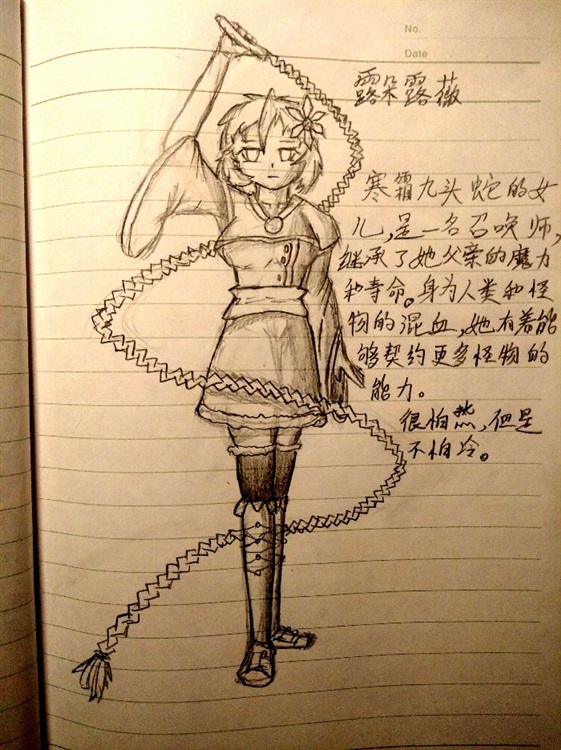 No.
Date
露朵露薇
寒霜九头蛇的女
儿,是一名召唤师,
继承了她父亲的魔力
和寿命。身为人类和怪
物的混血,她有着能
够契约更多怪物的
能力。
很怕热,但是
不怕冷。